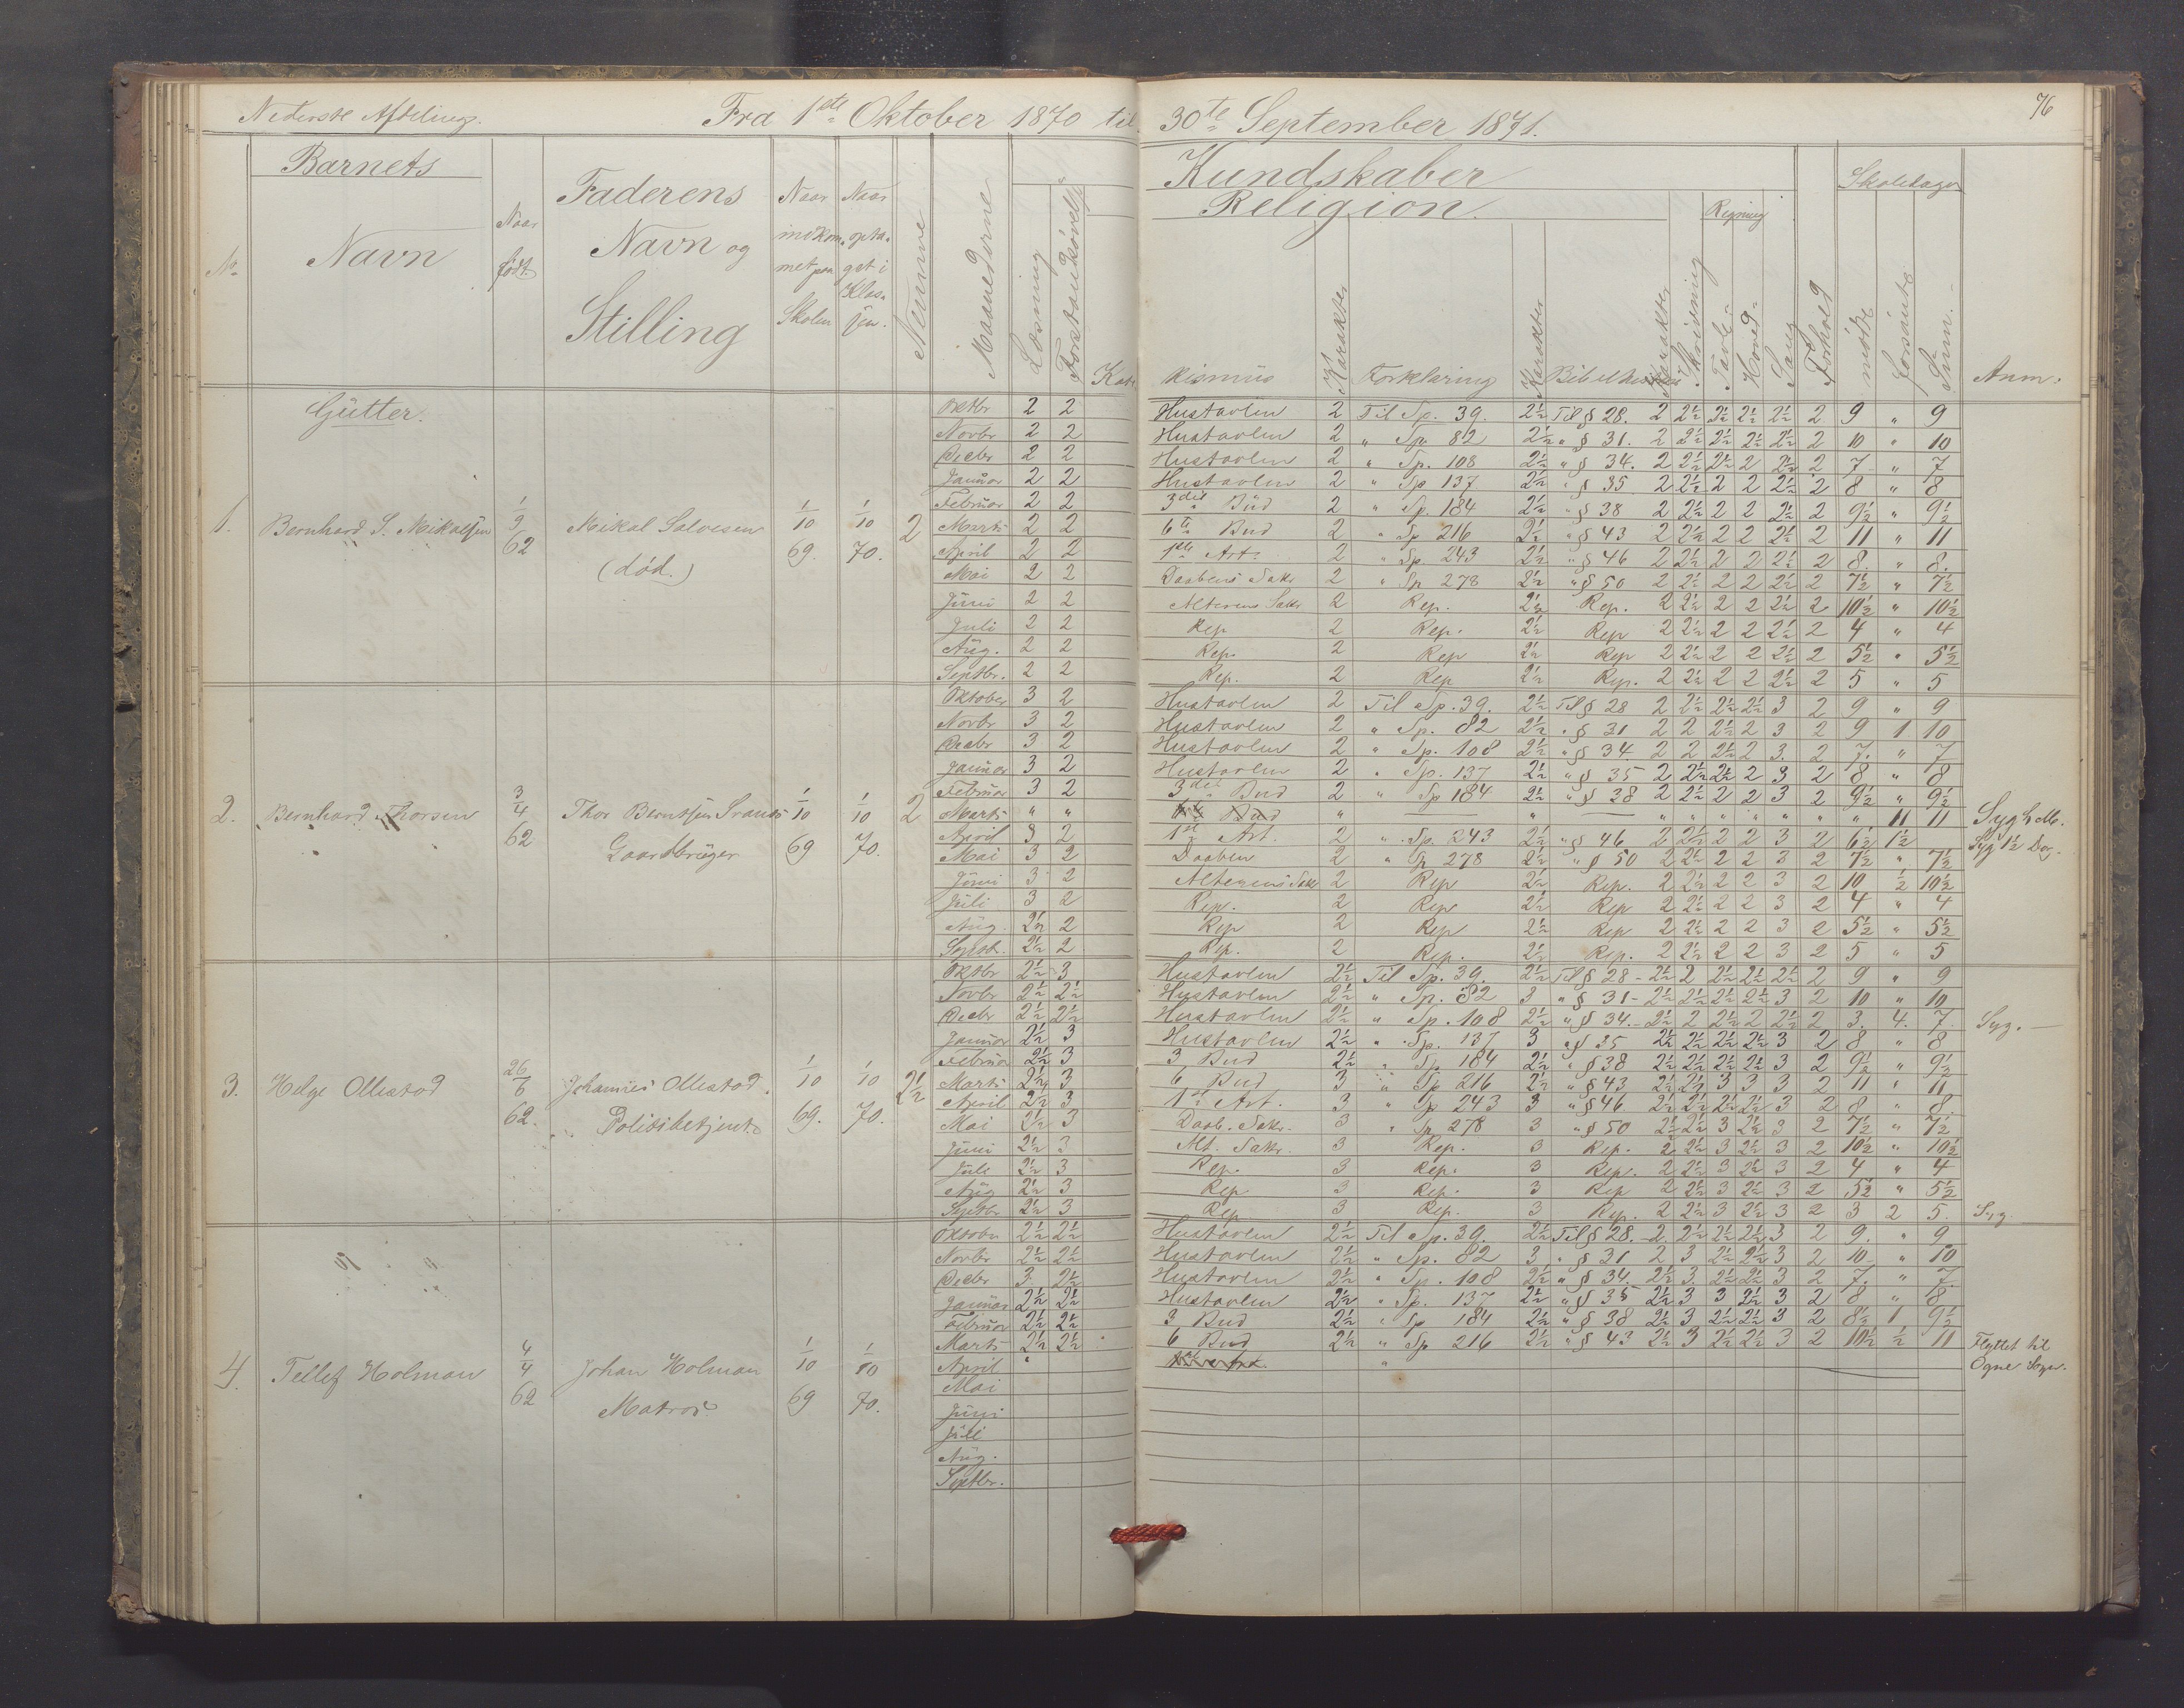 Nederste Afdeling. Fra 1ste Oktober 1870 til 30te September 1871. 76
Barnets Kundskaber Skoledage
Faderens Religion. Regning
No Navn Naar født. Navn og Stilling Naar indkommet paa Skolen Naar optaget i Klassen. Nemme Maanederne Læsning Katekismus Karakter Forklaring Karakter Bibelhistorie Karakter Skrivning Tavle- Hoved- Sang Forhold mødte forsømte Sum. Anm.
Gutter.
1. Bernhard S. Mikalsen 1/9 62 Mikal Salvesen (død.) 1/10 69. 1/10 70. 2
Oktbr 2 2 Hustavlen 2 Til Sp. 39. 2½ Til § 28. 2 2½ 2½ 2½ 2½ 2 9 " 9
Novbr 2 2 Hustavlen 2 " Sp 82 2½ " § 31. 2 2½ 2½ 2½ 2½ 2 10 " 10
Decbr 2 2 Hustavlen 2 " Sp. 108 2½ " § 34. 2 2½ 2½ 2 2½ 2 7 " 7
Januar 2 2 Hustavlen 2 " Sp 137 2½ " § 35 2 2½ 2 2 2½ 2 8 " 8
Februar 2 2 3die Bud 2 " Sp. 184 2½ " § 38 2 2½ 2 2 2½ 2 9½ " 9½
Marts 2 2 6te Bud 2 " Sp 216 2½ " § 43 2 2½ 2 2 2½ 2 11 " 11
April 2 2 1ste Art. 2 " Sp. 243 2½ " § 46 2 2½ 2 2 2½ 2 8. " 8.
Mai 2 2 Daabens Sakr 2 " Sp 278 2½ " § 50 2 2½ 2 2 2½ 2 7½ " 7½
Juni 2 2 Alterens Sakr 2 Rep. 2½ Rep. 2 2½ 2 2 2½ 2 10½ " 10½
Juli 2 2 Rep 2 Rep. 2½ Rep 2 2½ 2 2 2½ 2 4 " 4
Aug. 2 2 Rep. 2 Rep 2½ Rep 2 2½ 2 2 2½ 2 5½ " 5½
Septbr. 2 2 Rep. 2 Rep 2½ Rep. 2 2½ 2 2 2½ 2 5 " 5
2. Bernhard Thorsen 3/4 62 Thor Berntsen Gaardbruger 1/10 69 1/10 70. 2
Oktober 3 2 Hustavlen 2 Til Sp. 39. 2½ Til § 28 2 2½ 2½ 2½ 3 2 9 " 9
Novbr 3 2 Hustavlen 2 " Sp. 82 2½ " § 31 2 2 2½ 2 3 2 9 1 10
Decbr 3 2 Hustavlen 2 " Sp. 108 2½ " § 34 2 2 2½ 2 3. 2 7. " 7
Januar 3 2 Hustavlen 2 " Sp. 137 2½ " § 35 2 2½ 2½ 2 3 2 8 " 8
Februar 3 2 3die Bud 2 " Sp 184 2½ " § 38 2 2½ 2 2 3 2 9½ " 9½
Marts " " Bud " — " — " " " " " " " 11 11 Syg
April 3 2 1ste Art. 2 " Sp. 243 2½ " § 46 2 2½ 2 2 3 2 6½ 1½ Syg 1½ Dag.
Mai 3 2 Daaben 2 " Sp 278 2½ " § 50 2 2½ 2 2 3 2 7½ " 7½
Juni 3 2 Alterens Sakr 2 Rep 2½ Rep. 2 2½ 2 2 3 2 10 ½ 10½
Juli 3 2 Rep. 2 Rep 2½ Rep 2 2½ 2 2 3 2 4 " 4
Aug. 2½ 2 Rep 2 Rep 2½ Rep 2 2½ 2 2 3 2 5½ " 5½
Septbr. 2½ 2 Rep. 2 Rep. 2½ Rep. 2 2½ 2 2 3 2 5 " 5
3. Helge Ollestad 26/6 62. Johannes Ollestad. Politibetjent 1/10 69. 1/10 70. 2½
Oktbr 2½ 3 Hustavlen 2½ Til Sp. 39. 2½ Til § 28 - 2½ 2 2½ 2½ 2½ 2 9 " 9
Novbr 2½ 2½ Hustavlen 2½ " Sp. 82 3 " § 31 - 2½ 2½ 2½ 2½ 3 2 10 " 10
Decbr 2½ 2½ Hustavlen 2½ " Sp. 108 2½ " § 34. - 2½ 2 2½ 2 2½ 2 3. 4. 7. Syg. —
Januar 2½ 3 Hustavlen 2½ " Sp. 137 3 " § 35 2½ 2½ 2½ 2½ 3 2 8 " 8
Februar 2½ 3 3 Bud 2½ " Sp 184 2½ " § 38 2½ 2½ 2½ 2½ 3 2 9½ " 9½
Marts 2½ 3 6 Bud 3 " Sp 216 2½ " § 43 2½ 2½ 3 3 3 2 11 " 11
April 2½ 3 1ste Art. 3 " Sp 243 3 " § 46 2½ 2½ 2½ 2½ 3 2 8 " 8
Mai 2½ 3 Daab. Sakr. 3 " Sp 278 3 " § 50 2½ 2½ 3 2½ 3 2 7½ " 7½
Juni 2½ 3 Alt. Sakr. 3 Rep. 3 Rep. 2 2½ 3 2½ 3 2 10½ " 10½
Juli 2½ 3 Rep. 3 Rep. 3 Rep. 2 2½ 3 2½ 3 2 4 " 4
Aug 2½ 3 Rep 3 Rep. 3 Rep 2 2½ 3 2½ 3 2 5½ " 5½
Septbr 2½ 3 Rep 3 Rep. 3 Rep. 2 2½ 3 2½ 3 2 3 2 5. Syg.
4. Tellef Holman 4/4 62 Johan Holman Matros 1/10 69 1/10 70.
Oktober 2½ 2½ Hustavlen 2½ Til Sp. 39. 2½ Til § 28. - 2 2½ 2½ 2½ 3 2 9. " 9
Novbr 2½ 2½ Hustavlen 2½ " Sp. 82 3 " § 31 2 3 2½ 2½ 3 2 10 " 10
Decbr 3 2½ Hustavlen 2½ " Sp. 108 2½ " § 34. 2½ 3. 2½ 2½ 3 2 7. " 7.
Januar 2½ 2½ Hustavlen 2½ " Sp. 137 2½ " § 35 2½ 3 3 2½ 3 2 8 " 8
Februar 2½ 2½ 3 Bud 2½ " Sp 184 2½ " § 38 2½ 3 2½ 2½ 3 2 8½ 1 9½
Marts 2½ 2½ 6 Bud 2½ " Sp 216 2½ " § 43 2½ 3 2½ 2½ 3 2 10½ ½ 11 Flyttet til
April " " Ogne Sogn.
Mai
Juni
Juli
Aug.
Septbr.